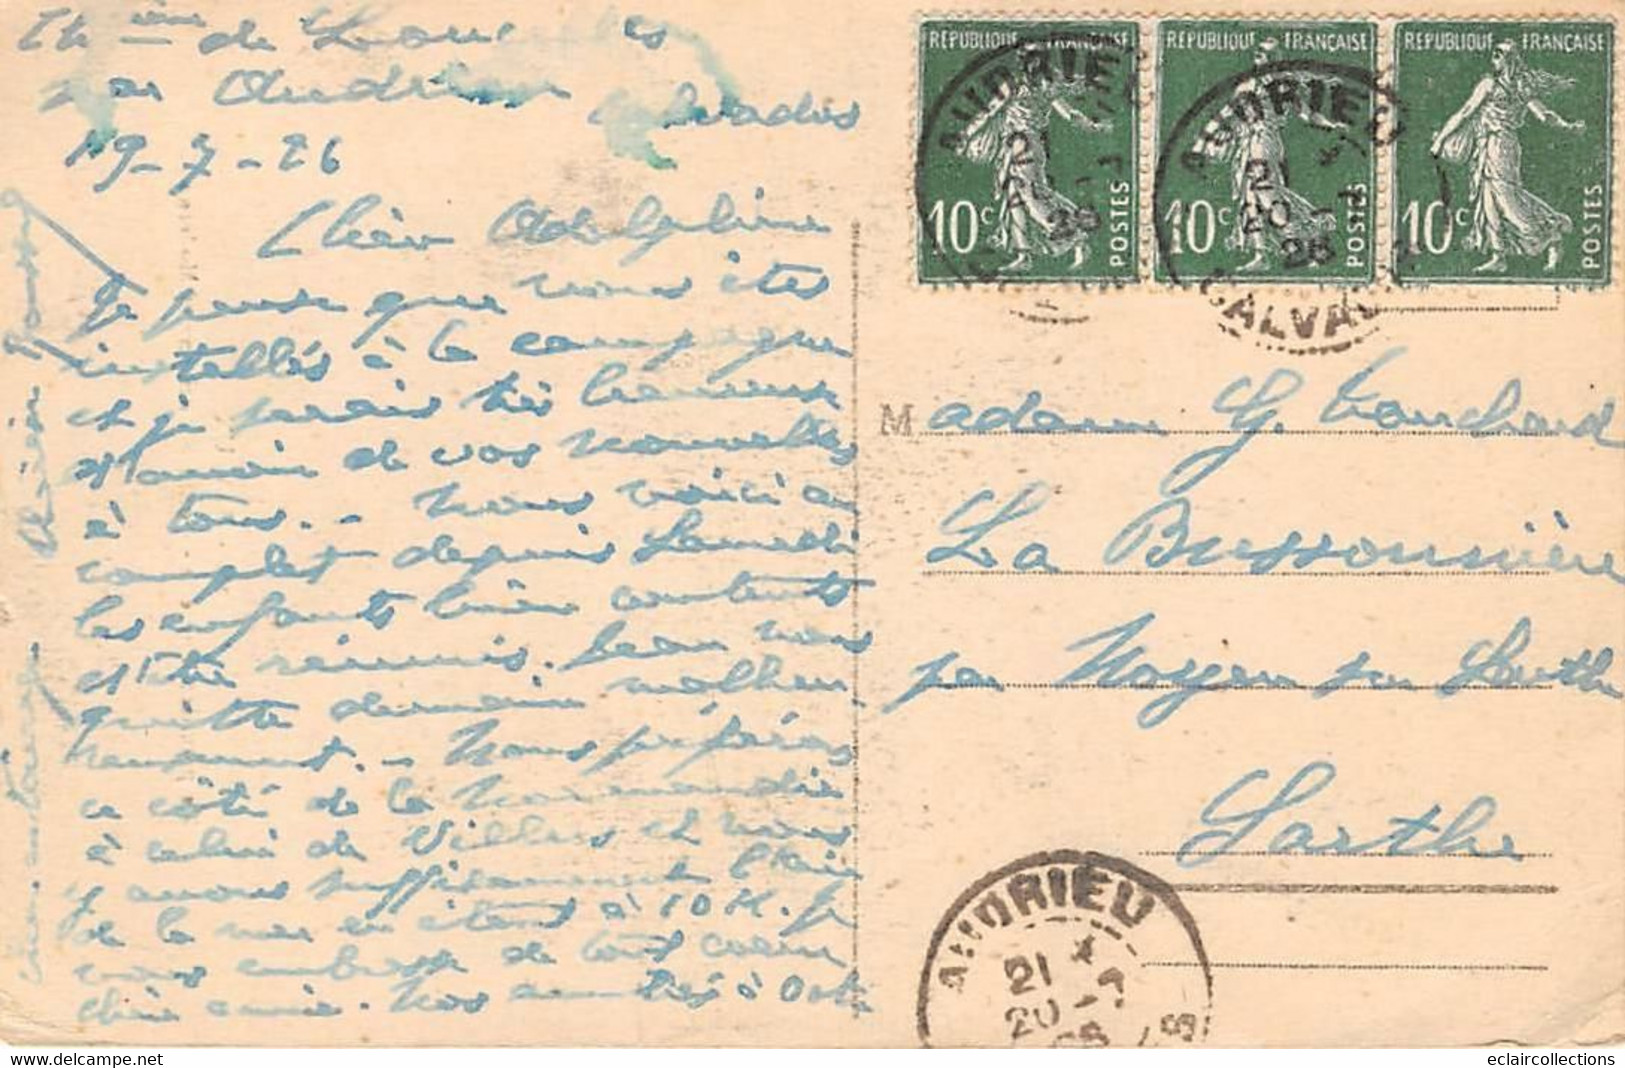 de
par Audrieu Calvados
19-7-26
Chère Adelphine
Je pense que vous êtes
installés à la campagne
et je serais très heureuse
d'avoir de vos nouvelles
à tous. - Nous voici au
complet depuis Samedi
les enfants bien contents
d'être réunis. Jean nous
quitte demain malheu
reusement. - Nous préférons
ce côté de la Normandie
à celui de Villers et nous
y avons suffisamment l'air
de la mer en étant à 10 K. Je
vous embrasse de tout coeur
chère amie. Nos amitiés à
mon entourage
RÉPUBLIQUE FRANÇAISE
10c POSTES
RÉPUBLIQUE FRANÇAISE
10c POSTES
RÉPUBLIQUE FRANÇAISE
10c POSTES
AUDRIEU
21
26
AUDRIEU
21
20-7
26
CALVADOS
Madame G. Touchard
La Bussonnière
par Noyen sur Sarthe
Sarthe
AUDRIEU
21
20-7
26
eclaircollections